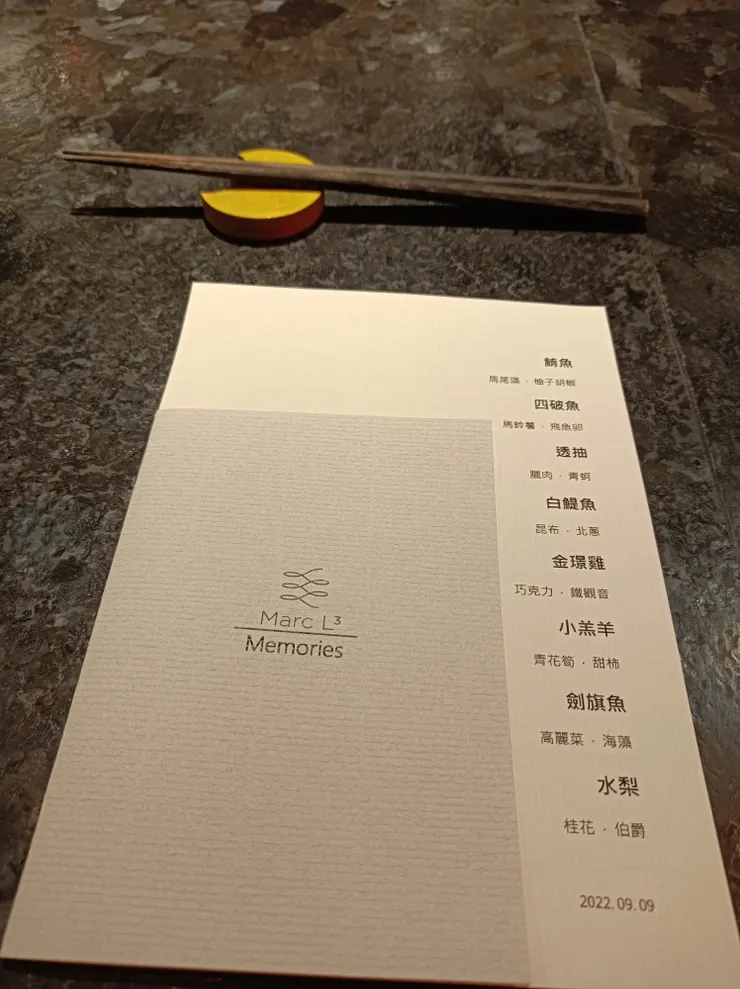 鮪魚
馬尾藻 · 柚子胡椒
四破魚
馬鈴薯 · 飛魚卵
透抽
臘肉 · 青蚵
白鯷魚
昆布 · 北蔥
金璟雞
巧克力 · 鐵觀音
小羔羊
青花筍 · 甜柿
劍旗魚
高麗菜 · 海藻
水梨
桂花 · 伯爵
2022.09.09
Marc L³
Memories